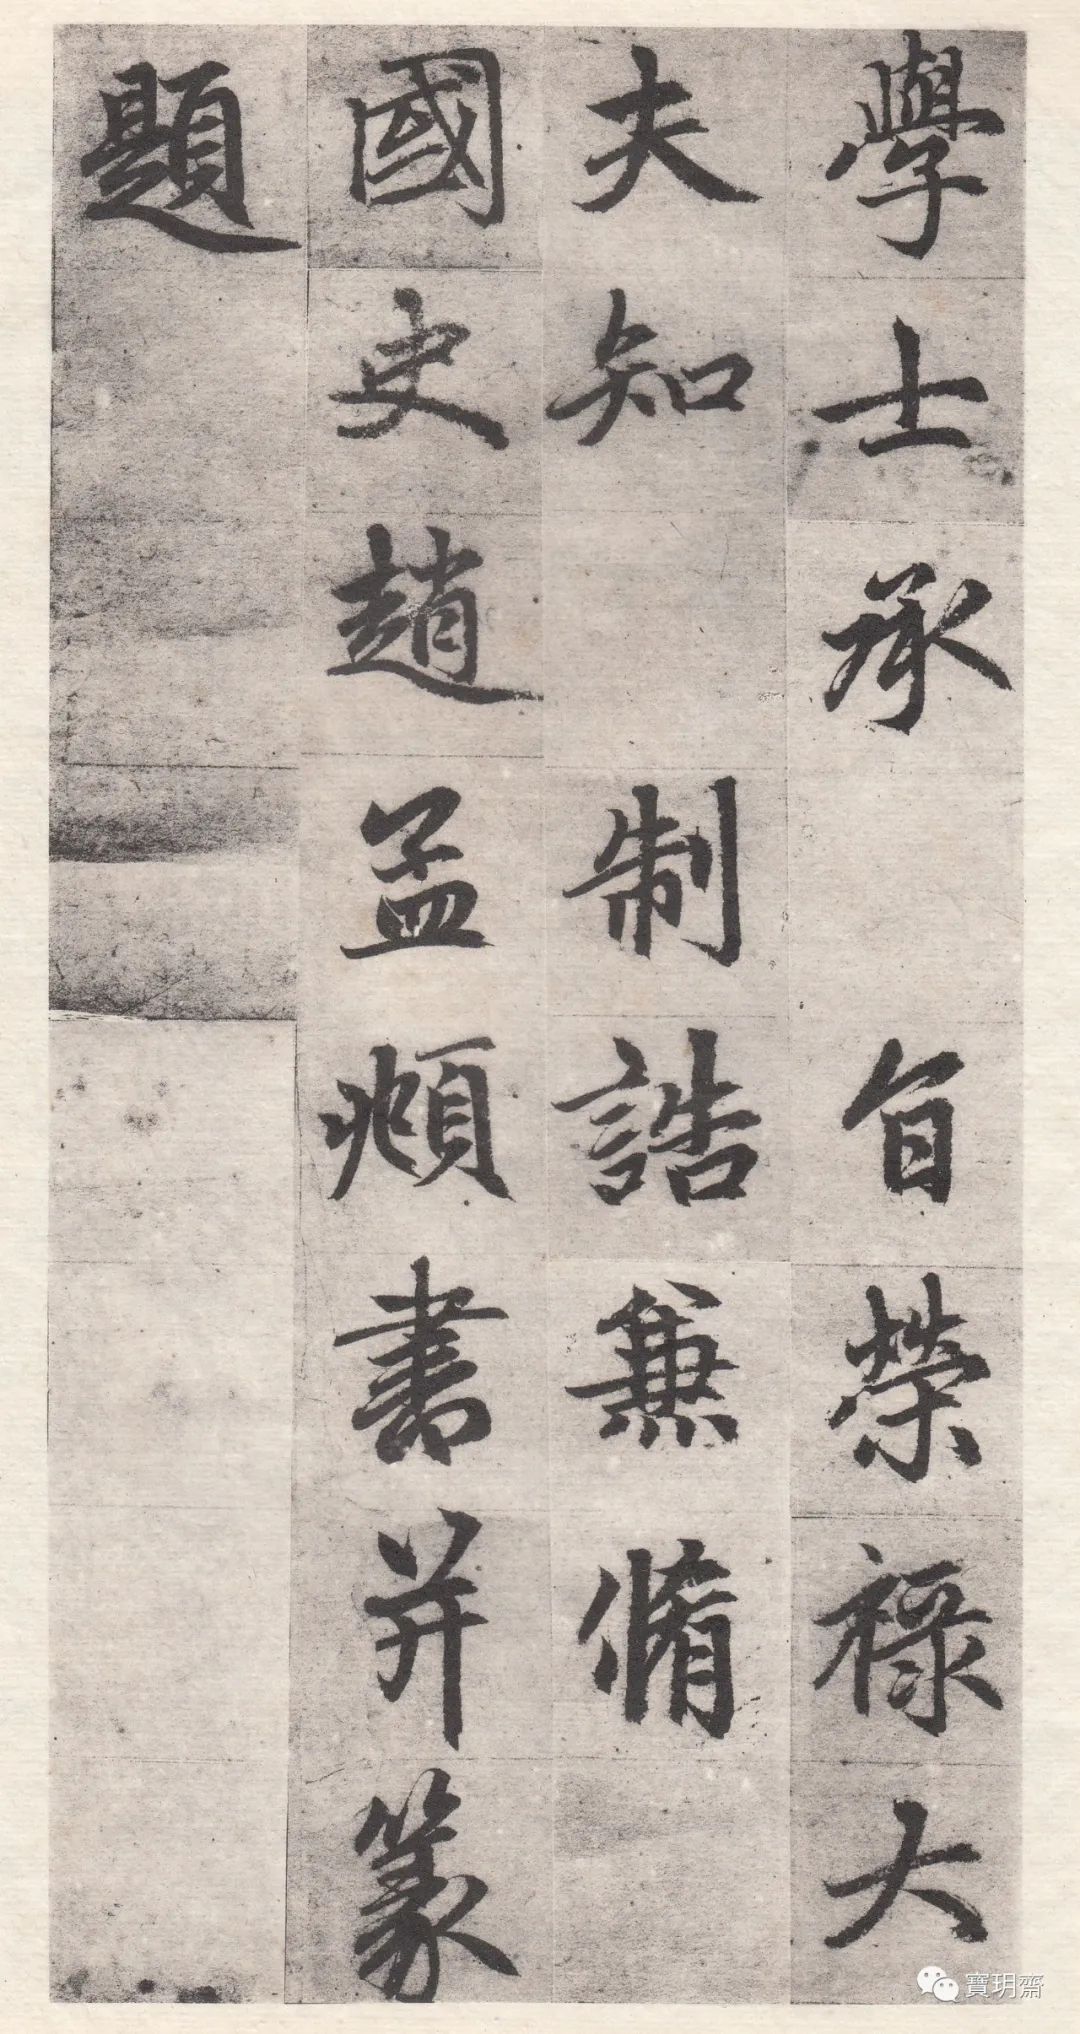 學士承 旨榮祿大
夫知 制誥兼脩
國史趙孟頫書并篆
題
寶玥齋